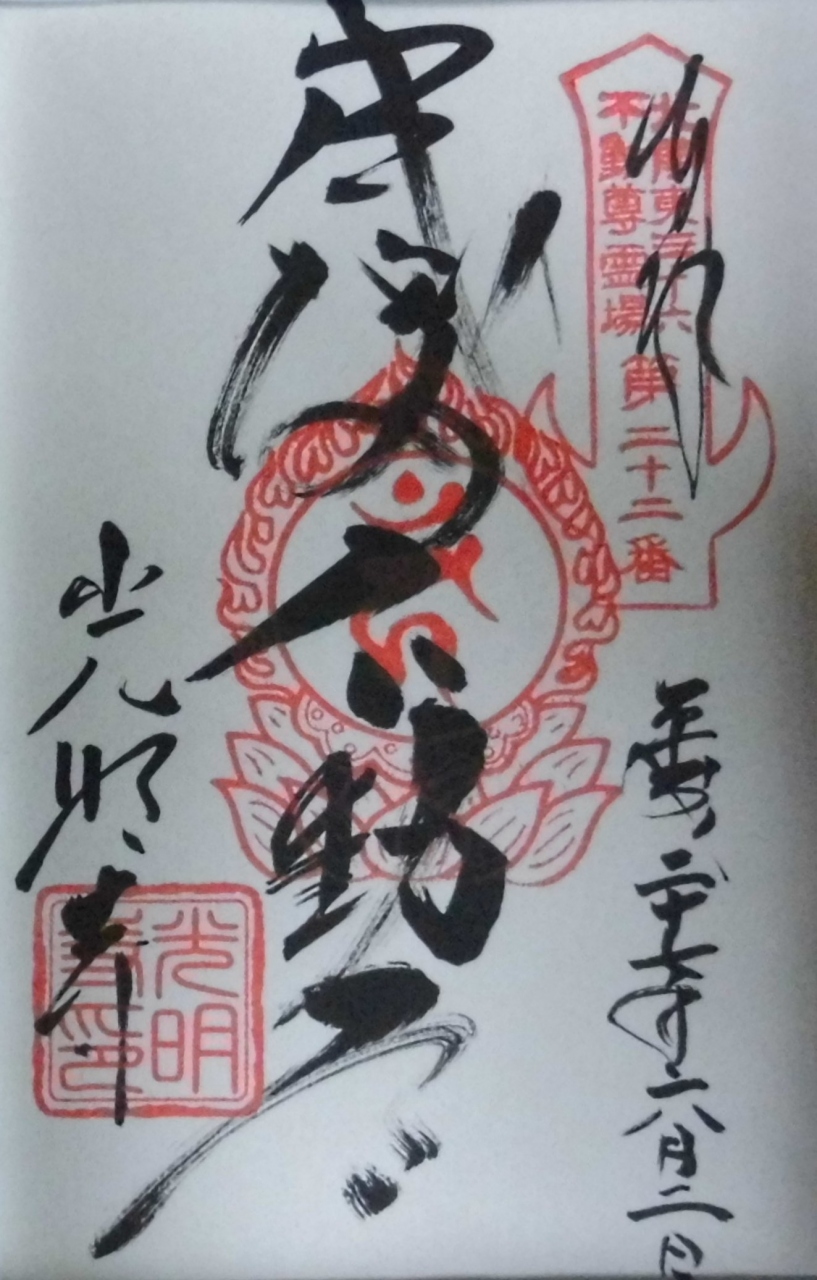 奉拝
北関東三十六
不動尊霊場
第二十二番
平成二十七年六月二日
不動尊
光明寺
光明
寺印